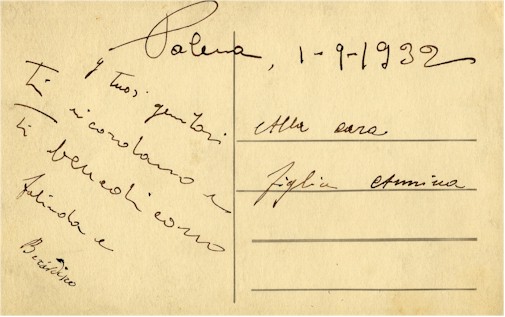 Palena, 1-9-1932
I tuoi genitori
Ti ricordano e
Ti benedicono
Felinda e
Berardino
Alla cara
figlia Annina